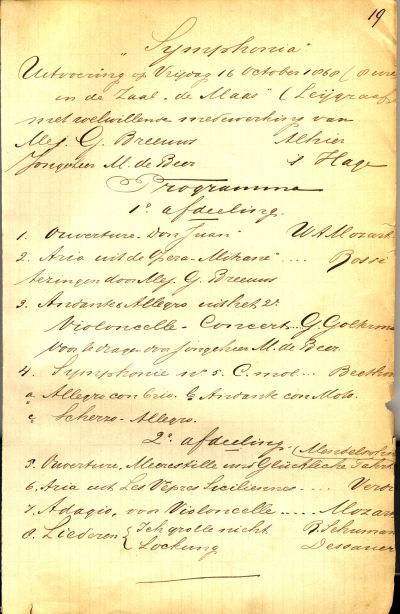 19
"Symphonia"
Uitvoering op Vrijdag 16 October 1868 (8 ure
in de Zaal "de Maas" (Leijgraaf
met welwillende medewerking van
Mej. G. Breeuws Alhier
Jongeheer M. de Beer s Hage
Programma
1e afdeeling.
1. Ouverture "Don Juan" W. A. Mozart
2. Aria uit de Opera
te zingen door Mej. G. Breeuws
3. Andante & Allegro uit het 2e
Violoncelle - Concert... G. Golterma
voor te dragen door Jongeheer M. de Beer
4. Symphonie No. 5. C. mol... Beethov
a Allegro con brio. b Andante con Moto.
c Scherzo - Allegro.
2e afdeeling.
(Mendelsohn
5. Ouverture, Meerestille und Glückliche Fahrt
6. Aria uit Les Vêpres Siciliennes.... Verdi
7. Adagio, voor Violoncelle..... Mozart
8. Liederen { Ich grolle nicht R. Schuman
Lockung Dessauer